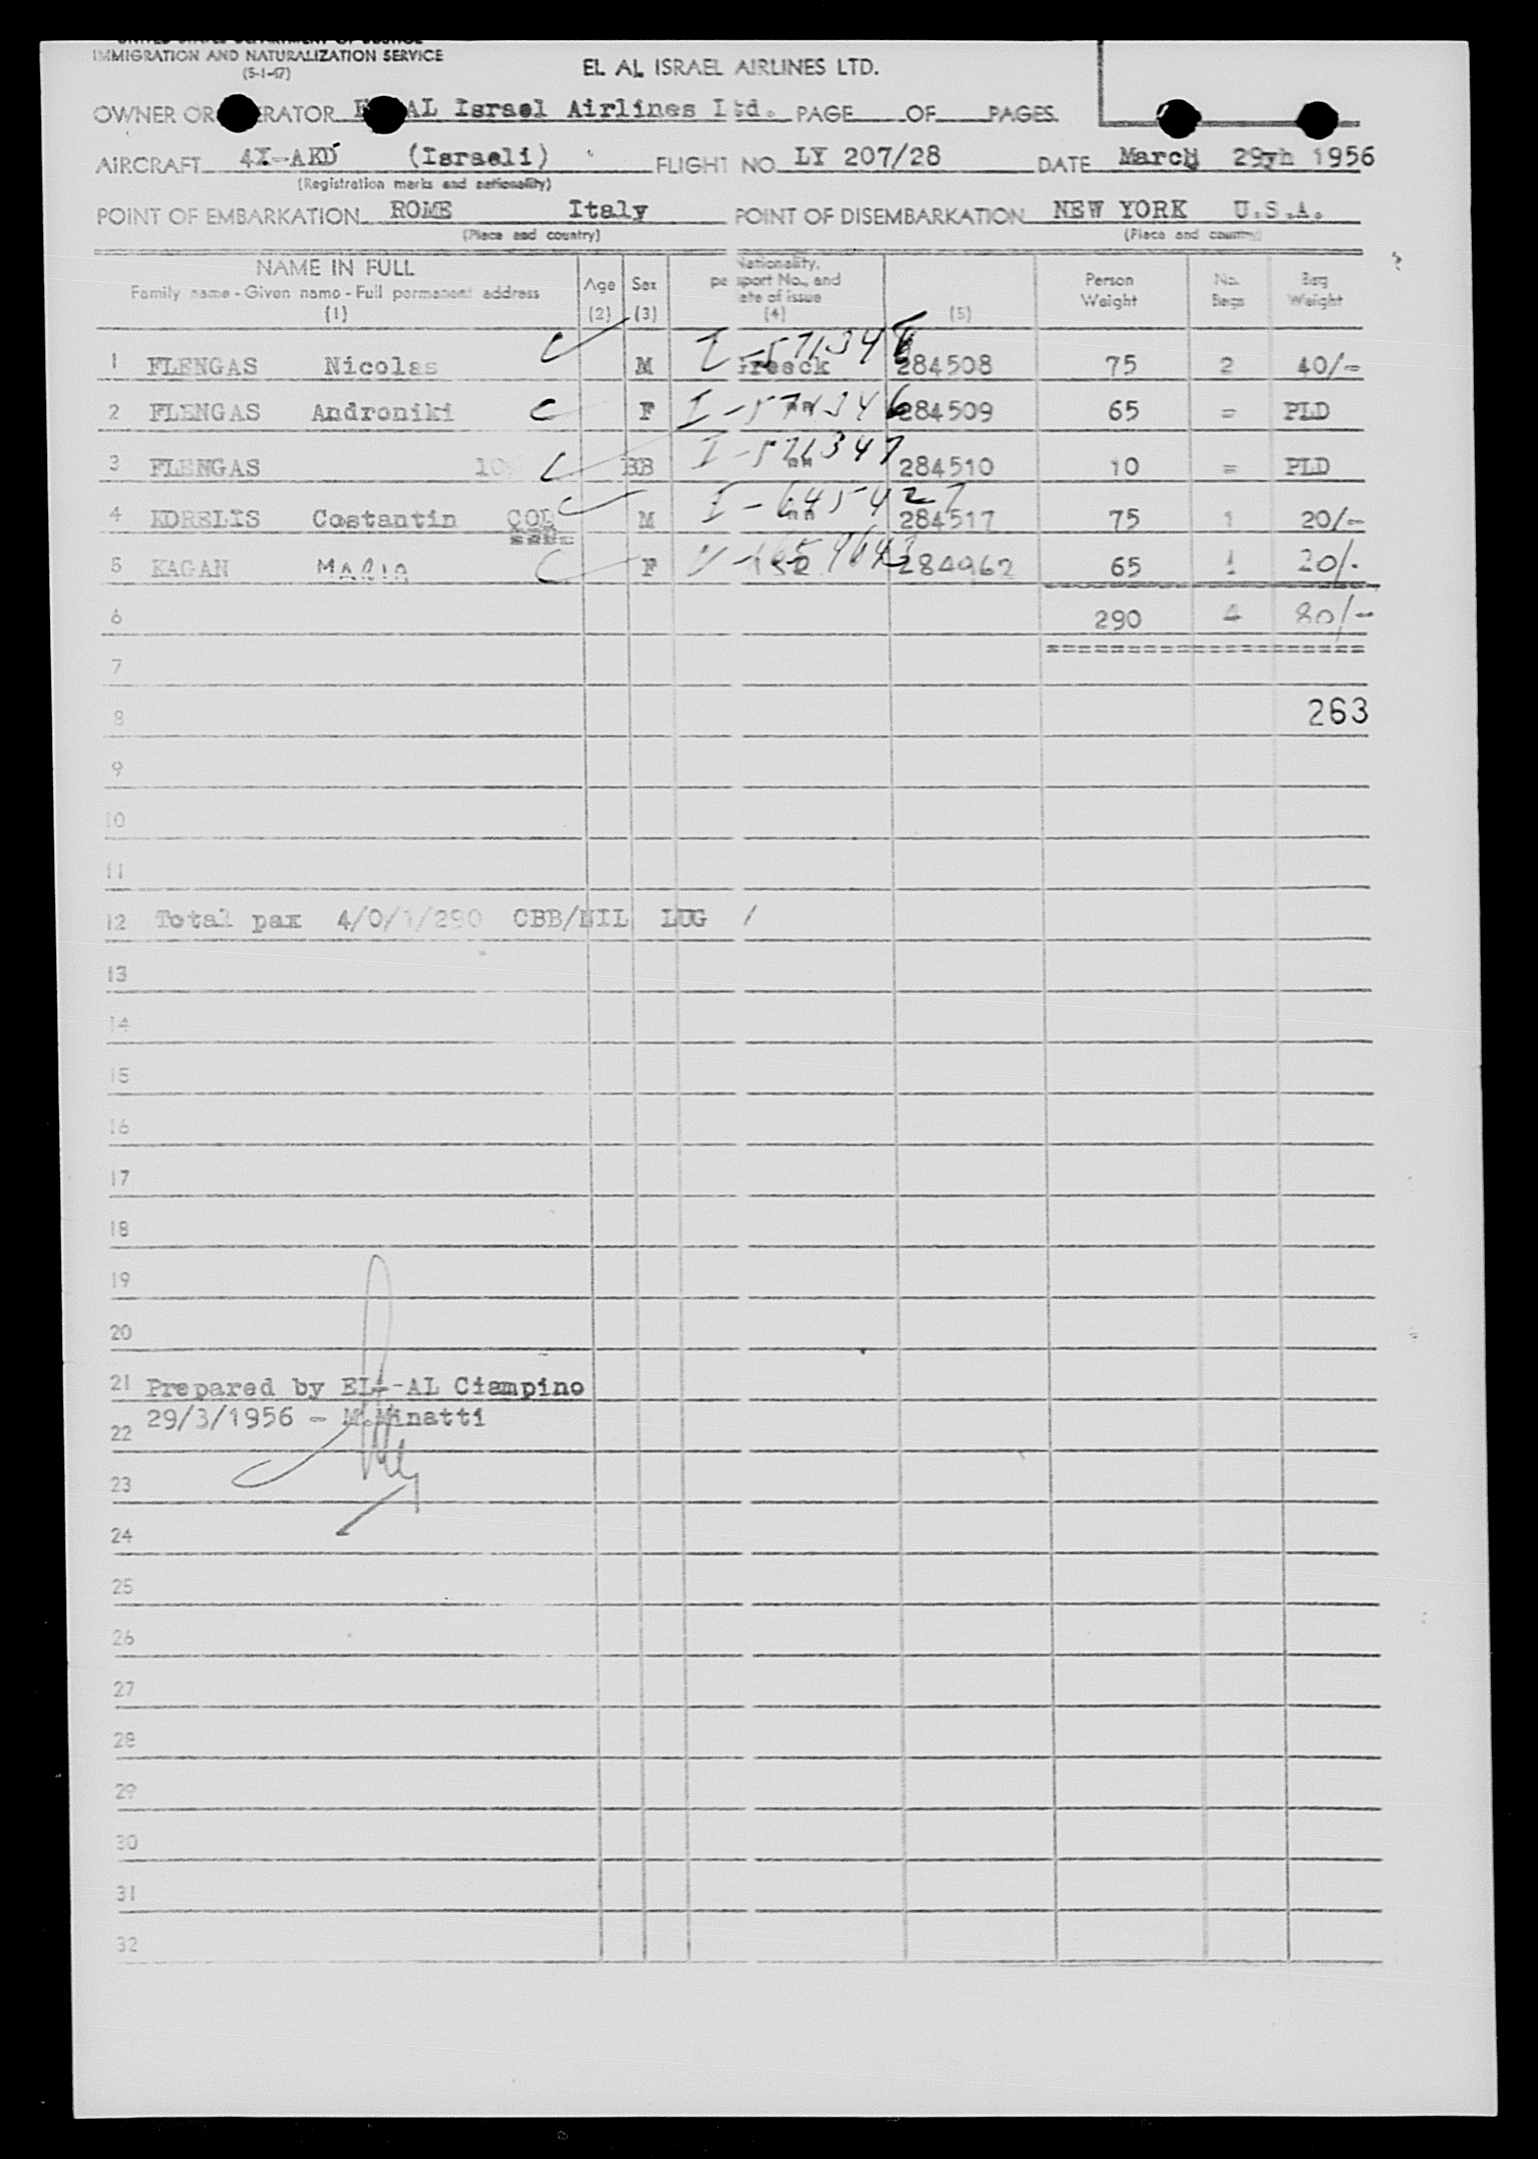 UNITED STATES DEPARTMENT OF JUSTICE
IMMIGRATION AND NATURALIZATION SERVICE
(5-1-47)
EL AL ISRAEL AIRLINES LTD.
OWNER OR OPERATOR EL AL Israel Airlines Ltd. PAGE OF PAGES
AIRCRAFT 4X-AKD (Israeli) FLIGHT NO. LY 207/28 DATE March 29yh 1956
(Registration marks and nationality)
POINT OF EMBARKATION ROME Italy POINT OF DISEMBARKATION NEW YORK U.S.A.
(Place and country) (Place and country)
NAME IN FULL
Family name - Given name - Full permanent address
(1)
Age
(2)
Sex
(3)
Nationality,
passport No., and
date of issue
(4)
(5)
Person
Weight
No.
Bags
Bag
Weight
1 FLENGAS Nicolas M Greeck 284508 75 2 40/-
2 FLENGAS Androniki F I-571346 "" 284509 65 = PLD
3 FLENGAS BB I-571347 "" 284510 10 = PLD
4 KORELIS Costantin M I-645427 "" 284517 75 1 20/-
5 KAGAN MARIA F 284962 65 1 20/-
6 290 4 80/-
7
8 263
9
10
11
12 Total pax 4/0/1/290 CBB/NIL LUG /
13
14
15
16
17
18
19
20
21 Prepared by EL-AL Ciampino
22 29/3/1956 - M.Minatti
23
24
25
26
27
28
29
30
31
32